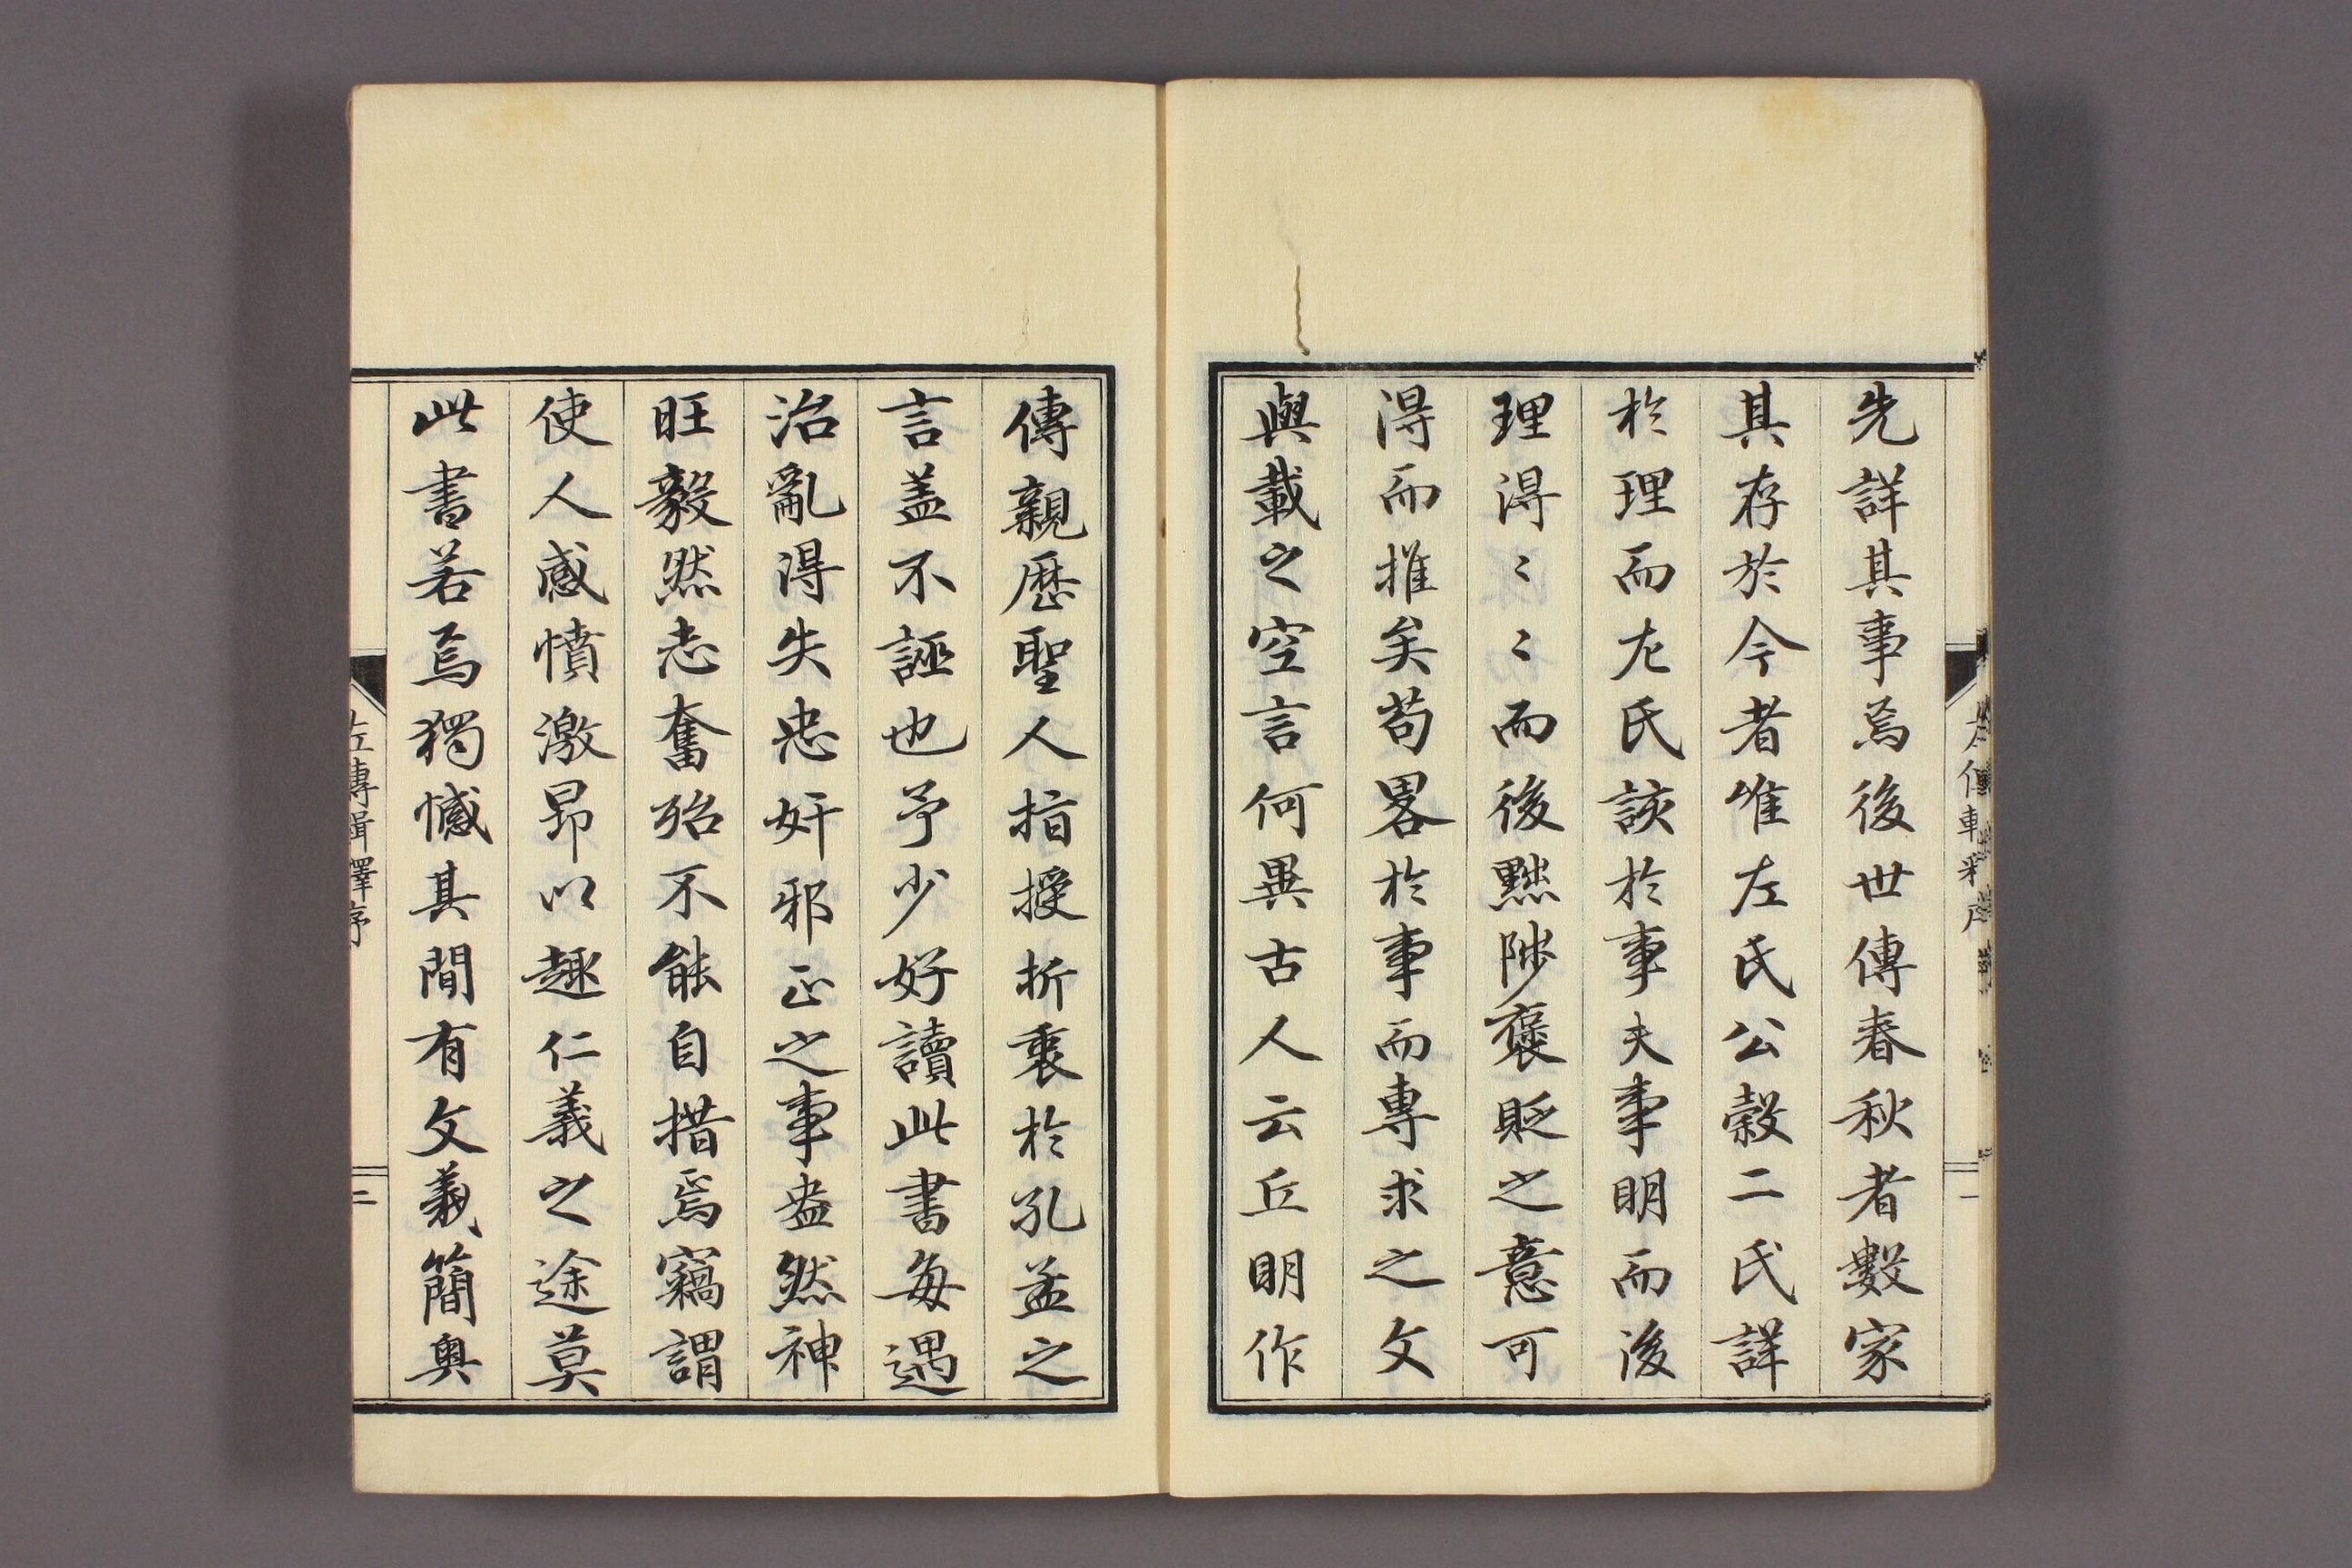 先詳其事焉後世傳春秋者數家
其存於今者唯左氏公穀二氏詳
於理而左氏該於事夫事明而後
理得〻〻而後黜陟褒貶之意可
得而推矣苟畧於事而專求之文
與載之空言何異古人云丘明作
傳親歷聖人指授折衷於孔孟之
言盖不誣也予少好讀此書每遇
治亂得失忠奸邪正之事盎然神
旺毅然志奮殆不能自措焉竊謂
使人感憤激昂以趣仁義之途莫
此書若焉獨憾其間有文義簡奥
左傳輯釋序
二